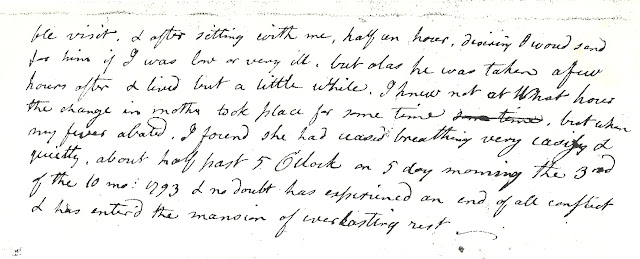 ble visit. & after sitting with me, half an hour, desiring I woud send
for him if I was low or very ill. but alas he was taken a few
hours after & lived but a little while. I knew not at What hour
the change in mother took place for some time some time, but when
my fever abated, I found she had ceased breathing very easily &
quietly, about half past 5 O'Clock on 5 day morning the 3rd
of the 10 mo: 1793 & no doubt has experienced an end of all conflict
& has enter'd the mansion of everlasting rest